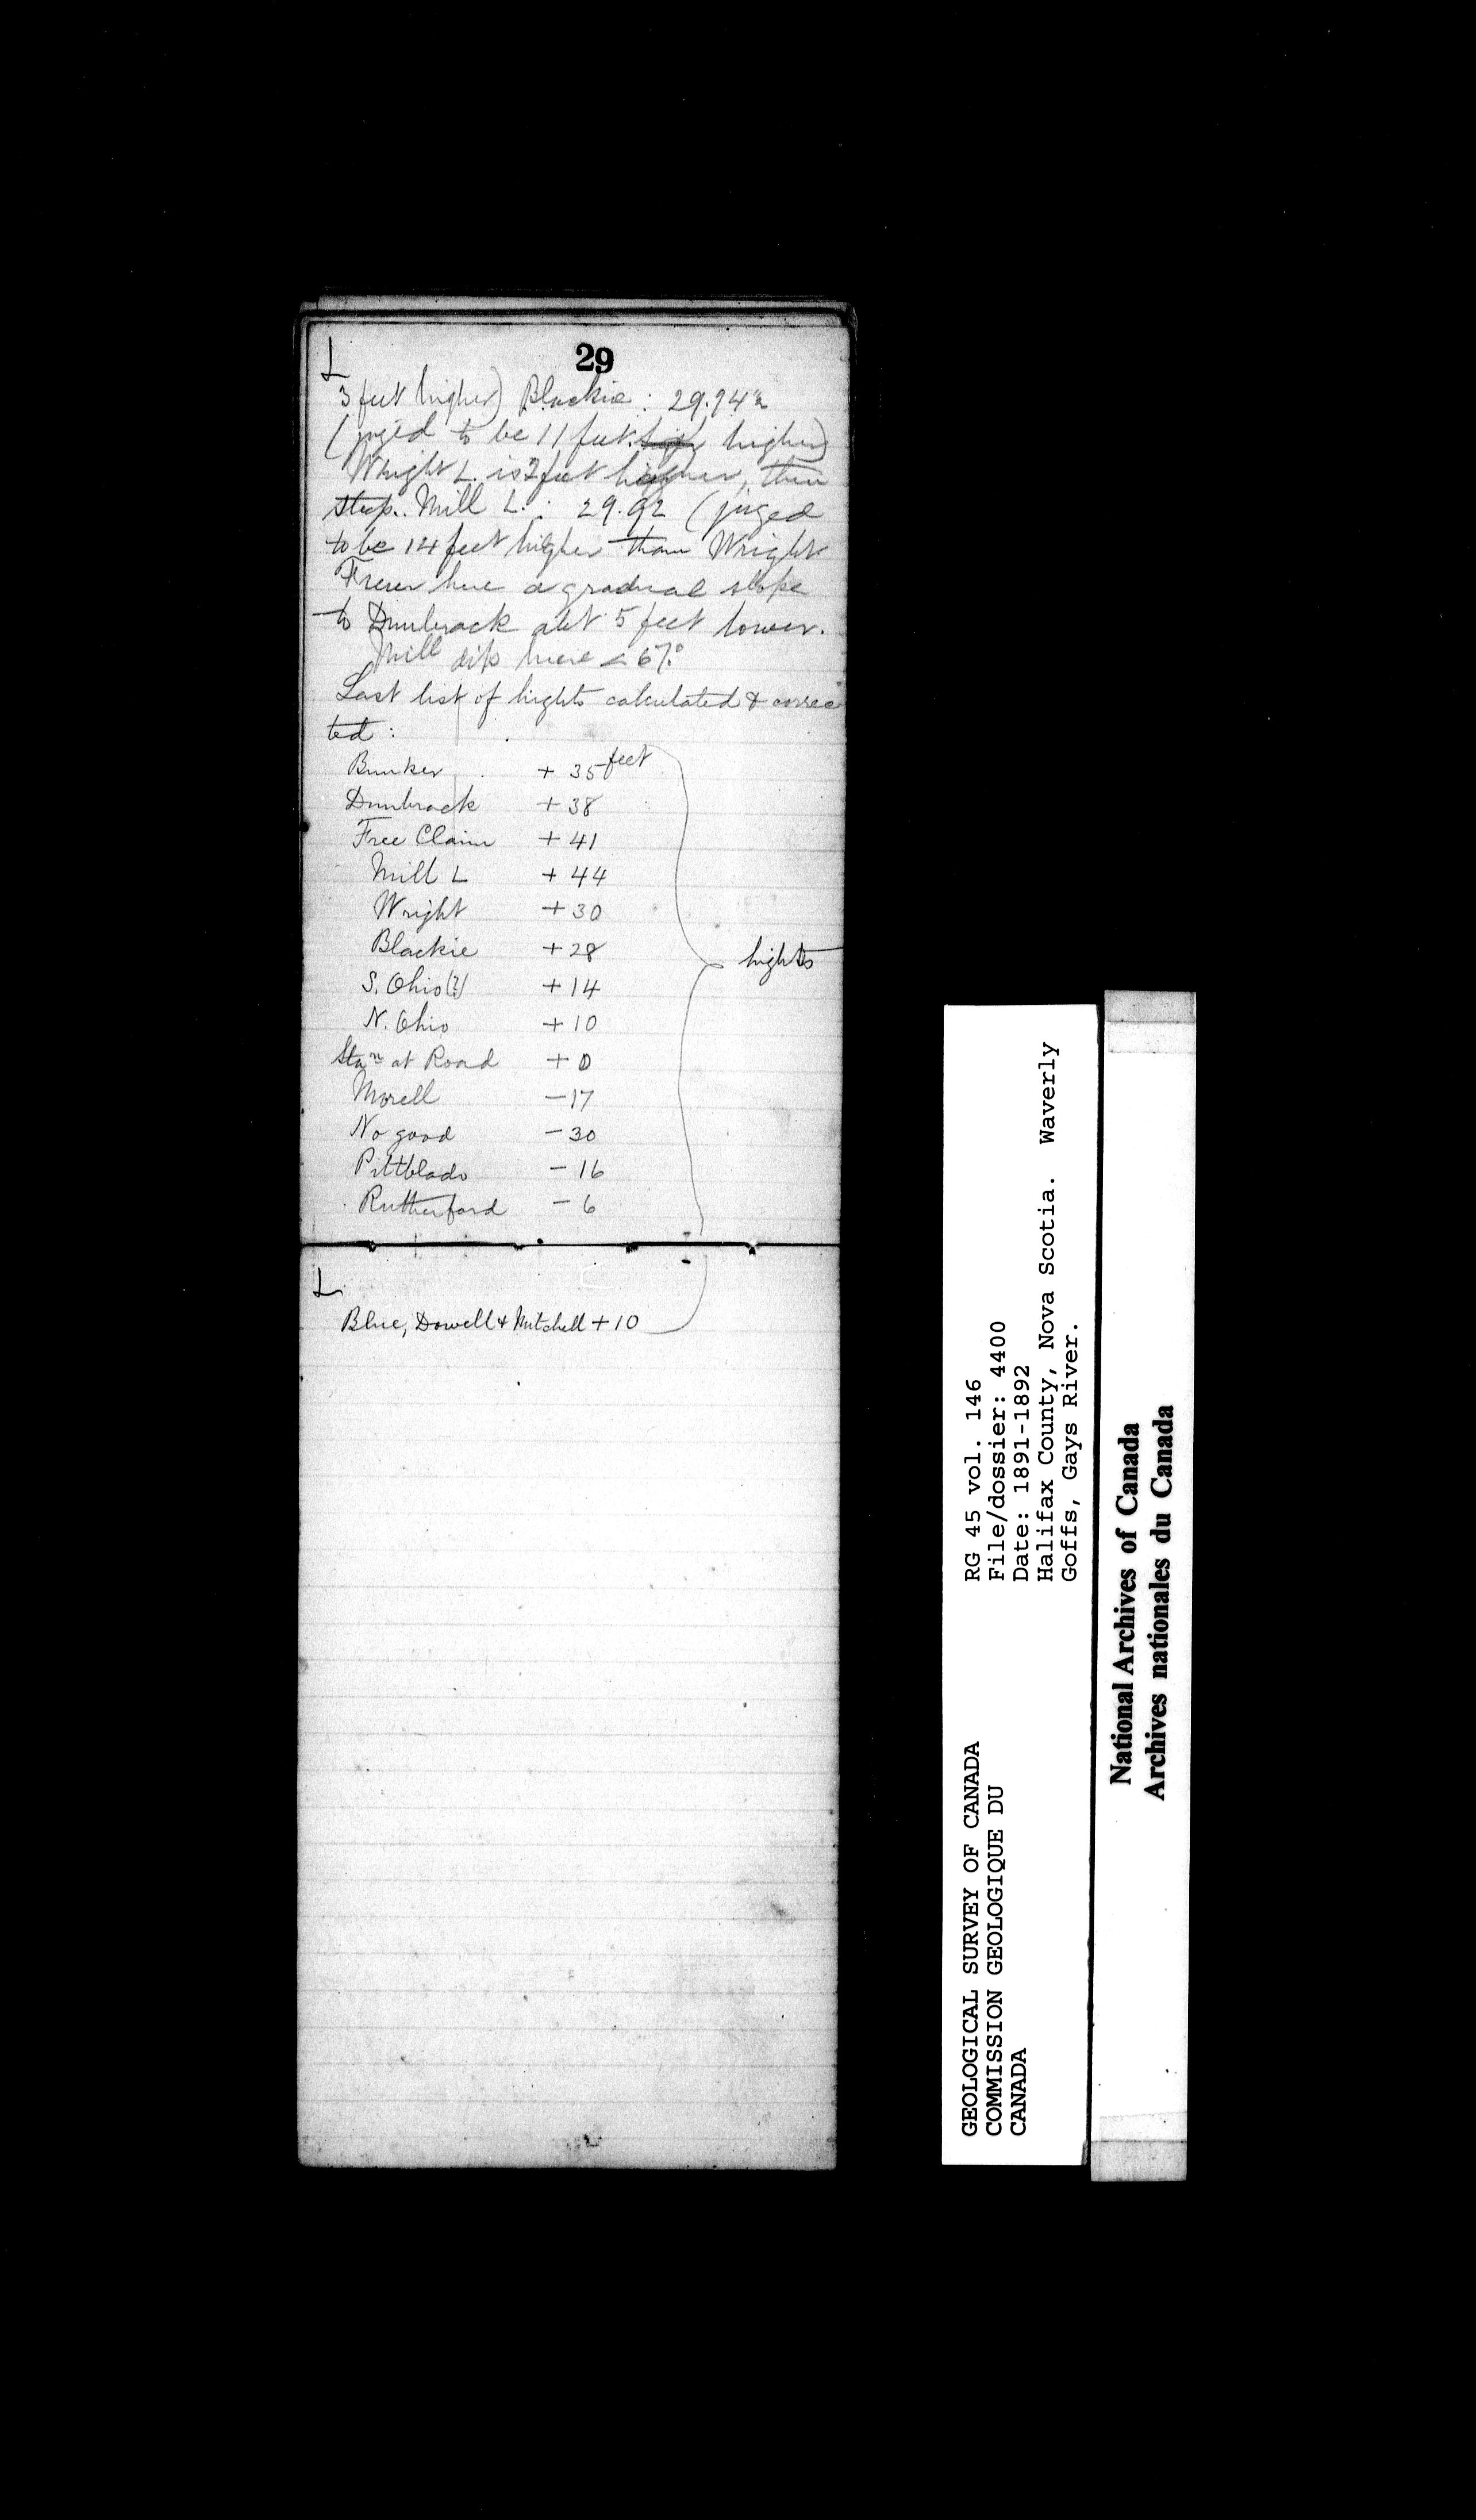 29
L
3 feet higher) Blackie : 29.94
(juged to be 11 feet higher)
Wright L. is 2 feet higher, then
steep. Mill L. : 29.92 (juged
to be 14 feet higher than Wright
From here a gradual slope
to Dunbrack abt 5 feet lower.
Mill dips here < 67°
Last list of hights calculated & correc
ted :
Bunker + 35 feet
Dunbrack + 38
Free Claim + 41
Mill L + 44
Wright + 30
Blackie + 28
hights
S. Ohio (?) + 14
N. Ohio + 10
Stan at Road + 0
Morell - 17
No good - 30
Pittblado - 16
Rutherford - 6
L
Blue, Dowell & Mitchell + 10
GEOLOGICAL SURVEY OF CANADA
COMMISSION GEOLOGIQUE DU
CANADA
RG 45 vol. 146
File/dossier: 4400
Date: 1891-1892
Halifax County, Nova Scotia. Waverly
Goffs, Gays River.
National Archives of Canada
Archives nationales du Canada